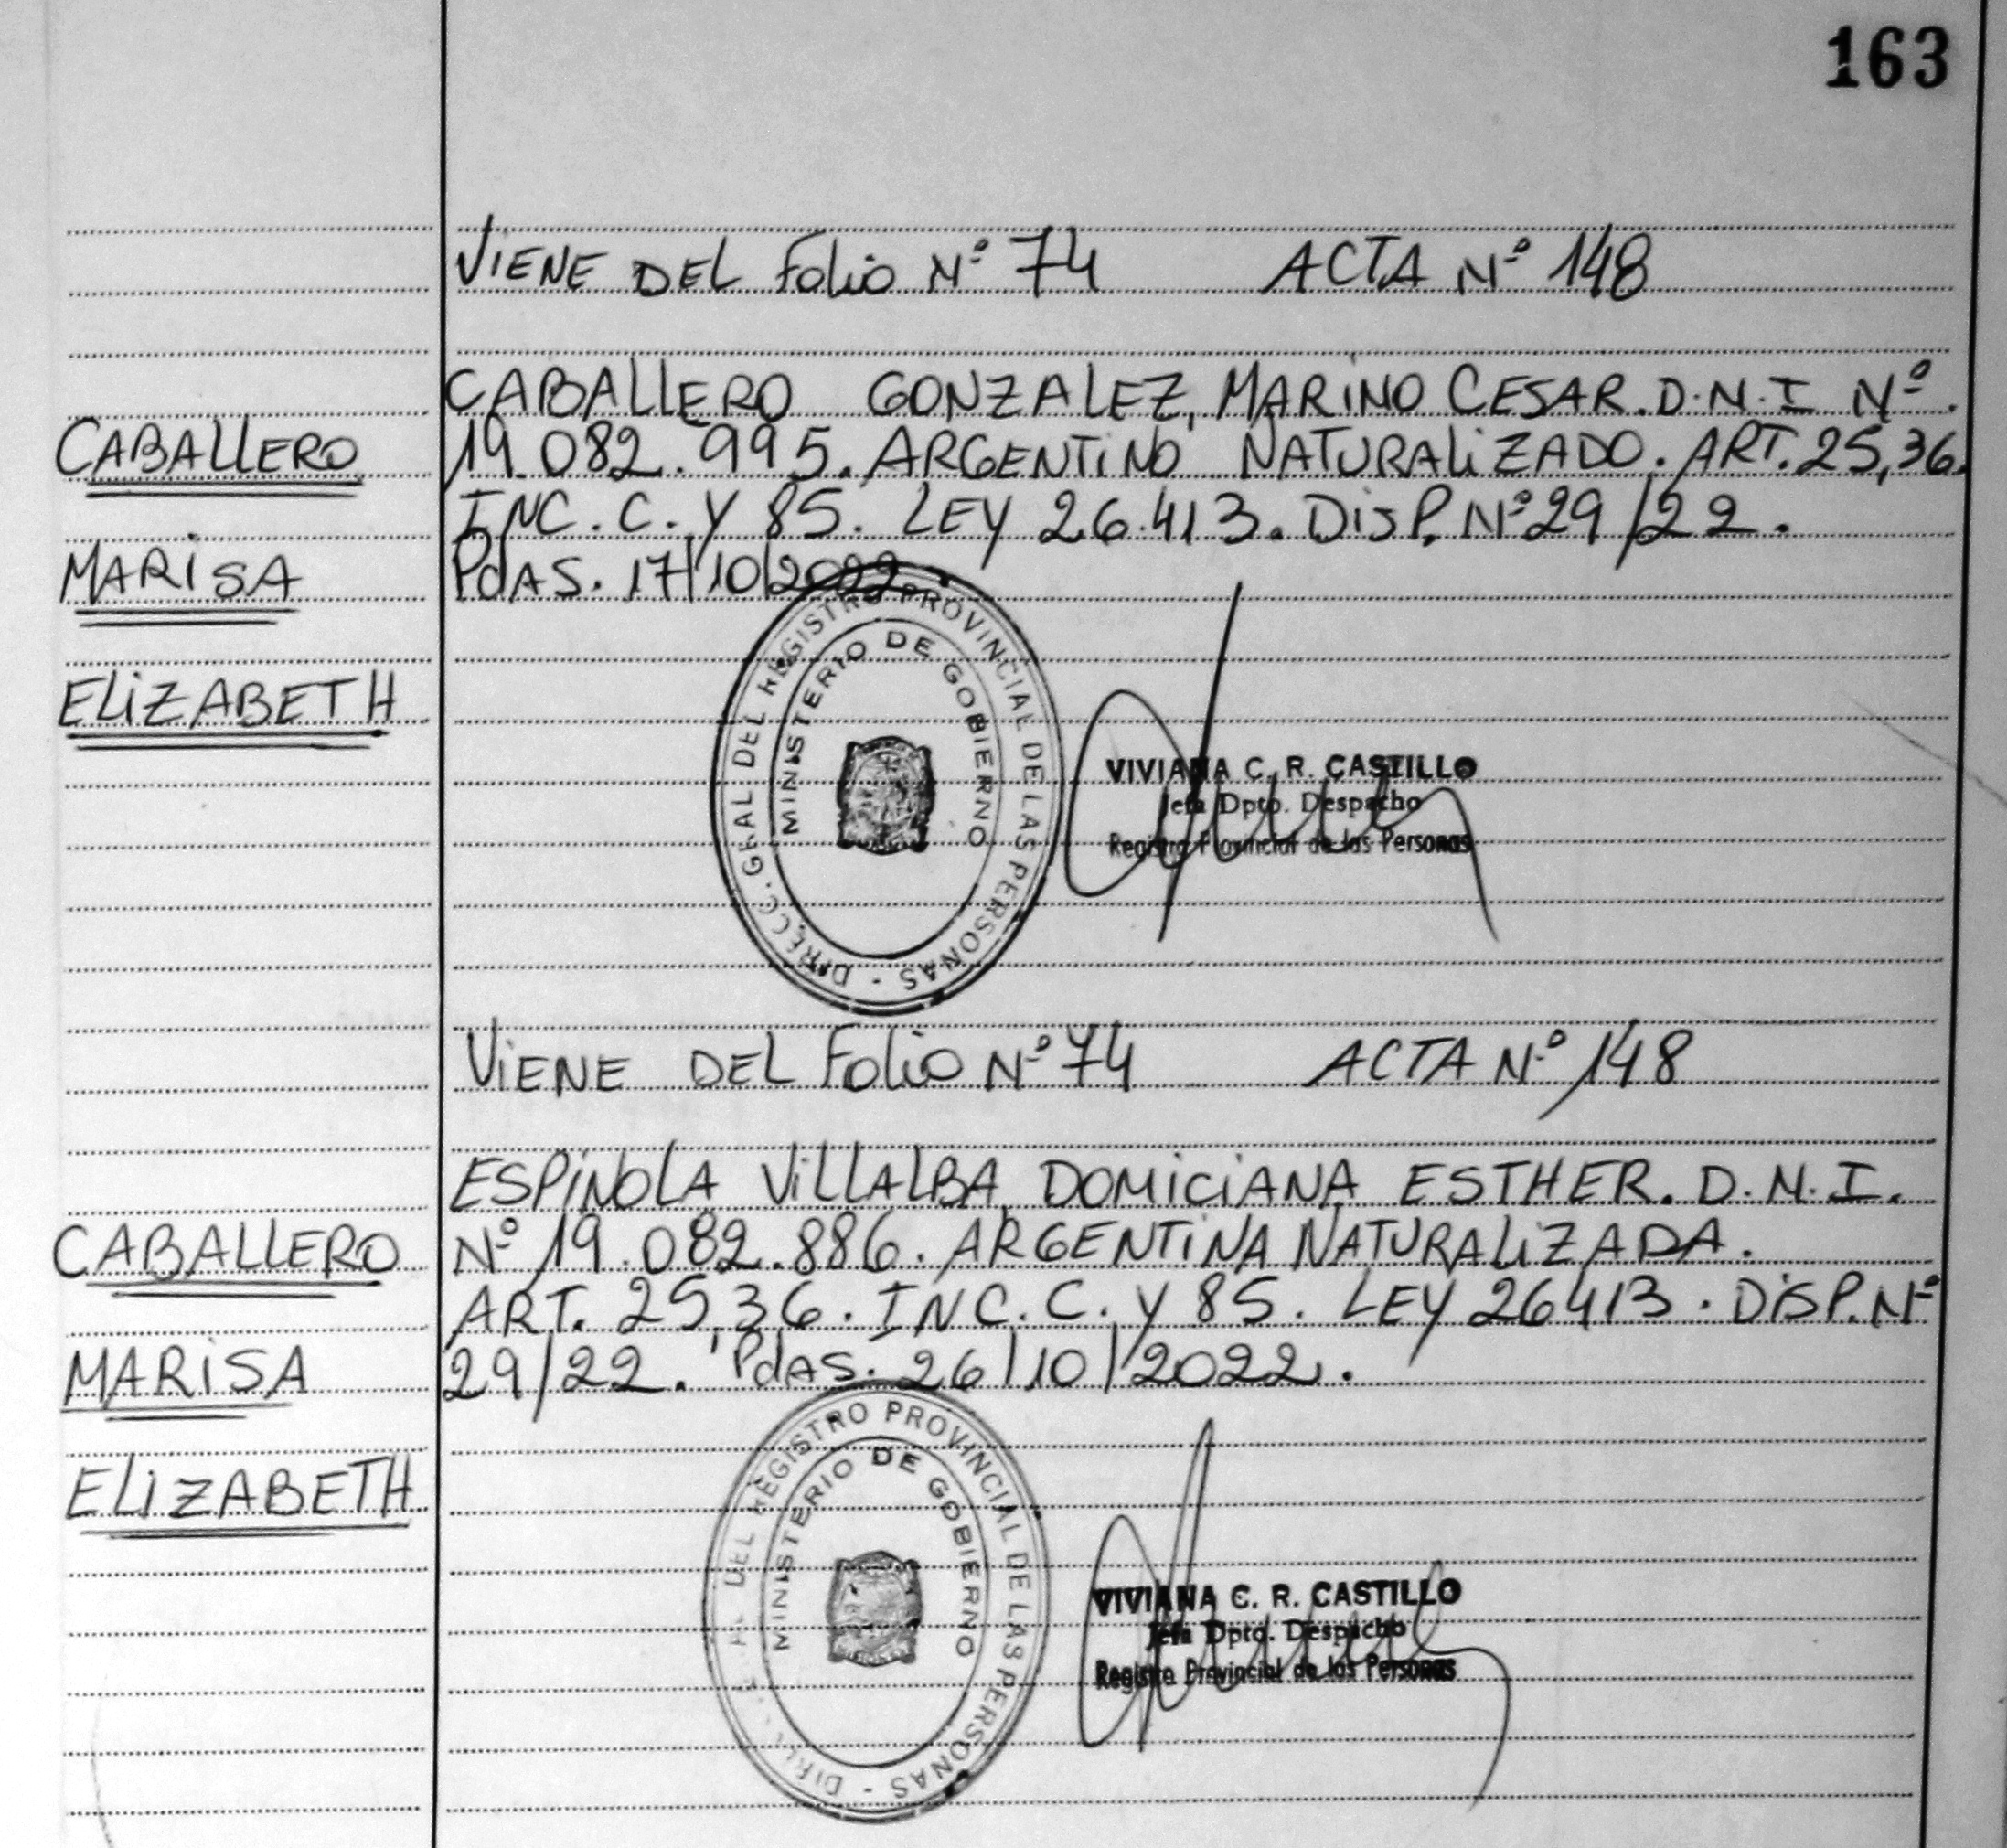 163
VIENE DEL Folio Nº 74 ACTA Nº 148
CABALLERO GONZALEZ, MARINO CESAR. D.N.I Nº
CABALLERO
19.082.995. ARGENTINO NATURALIZADO. ART. 25,36.
INC. C. Y 85. LEY 26.413. DISP. Nº 29/22.
MARISA
PdAS. 17/10/2022
ELIZABETH
DIRECC. GRAL DEL REGISTRO PROVINCIAL DE LAS PERSONAS -
MINISTERIO DE GOBIERNO
VIVIANA C. R. CASTILLO
Jefa Dpto. Despacho
Registro Provincial de las Personas
VIENE DEL Folio Nº 74 ACTA Nº 148
ESPINOLA VILLALBA DOMICIANA ESTHER. D.N.I.
CABALLERO
Nº 19.082.886. ARGENTINA NATURALIZADA.
ART. 25,36. INC. C. Y 85. LEY 26413. DISP. Nº
MARISA
29/22. PdAS. 26/10/2022.
ELIZABETH
DEL REGISTRO PROVINCIAL DE LAS PERSONAS -
MINISTERIO DE GOBIERNO
VIVIANA C. R. CASTILLO
Jefa Dpto. Despacho
Registro Provincial de las Personas